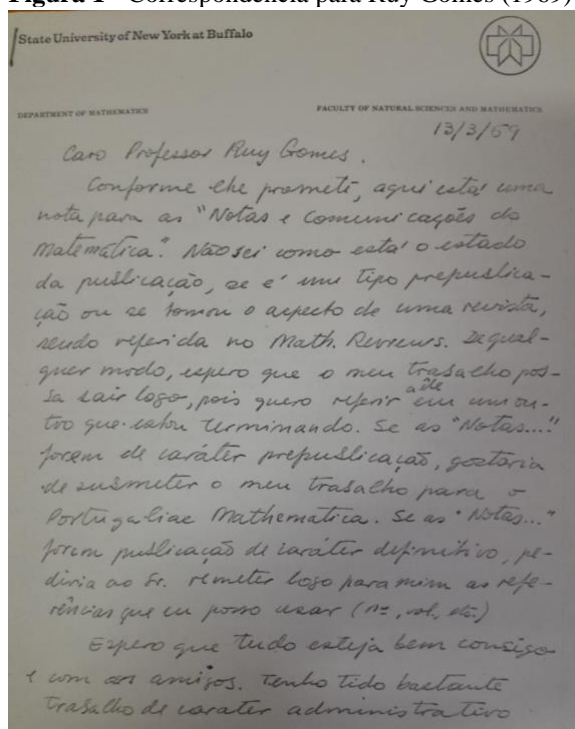 Figura 1 - Correspondência para Ruy Gomes (1969)
State University of New York at Buffalo
DEPARTMENT OF MATHEMATICS
FACULTY OF NATURAL SCIENCES AND MATHEMATICS
13/3/69
Caro Professor Ruy Gomes.
Conforme lhe prometi, aqui está uma
nota para as "Notas e Comunicações de
Matemática". Não sei como está o estado
da publicação, se é um tipo prepublica-
ção ou se tomou o aspecto de uma revista,
sendo referida no Math. Reviews. De qual-
quer modo, espero que o meu trabalho pos-
sa sair logo, pois quero referir a ele em um ou-
tro que estou terminando. Se as "Notas..."
forem de caráter prepublicação, gostaria
de submeter o meu trabalho para o
Portugaliae Mathematica. Se as "Notas..."
forem publicação de caráter definitivo, pe-
diria ao Sr. remeter logo para mim as refe-
rências que eu posso usar (nº, vol, etc.)
Espero que tudo esteja bem consigo
e com os amigos. Tenho tido bastante
trabalho de carater administrativo